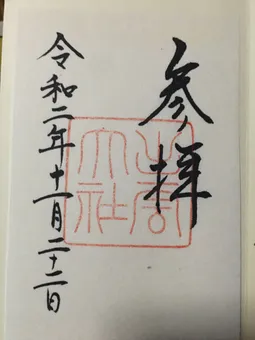 参拝
大社
令和二年十一月二十二日